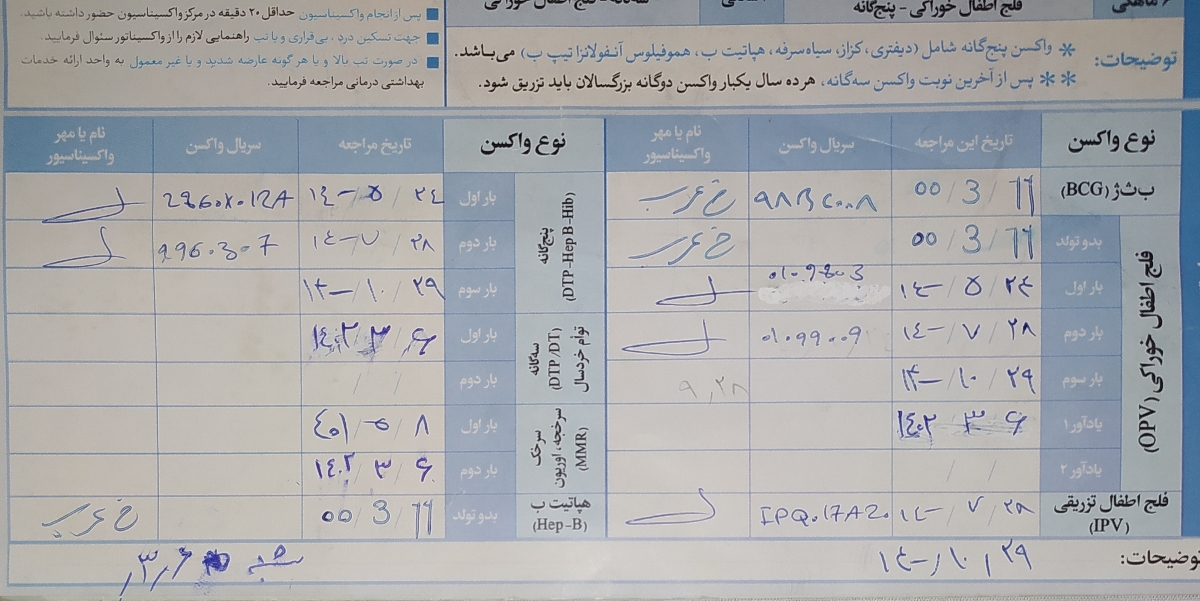 فلج اطفال خوراکی - پنج‌گانه
توضیحات:
* واکسن پنج‌گانه شامل (دیفتری، کزاز، سیاه‌سرفه، هپاتیت ب، هموفیلوس آنفولانزا تیپ ب) می‌باشد.
** پس از آخرین نوبت واکسن سه‌گانه، هر ده سال یکبار واکسن دوگانه بزرگسالان باید تزریق شود.
پس از انجام واکسیناسیون حداقل ۲۰ دقیقه در مرکز واکسیناسیون حضور داشته باشید.
جهت تسکین درد، بی‌قراری و یا تب راهنمایی لازم را از واکسیناتور سئوال فرمایید.
در صورت تب بالا و یا هر گونه عارضه شدید و یا غیر معمول به واحد ارائه خدمات
بهداشتی درمانی مراجعه فرمایید.
نوع واکسن تاریخ این مراجعه سریال واکسن نام یا مهر واکسیناسیور
ب ث ژ (BCG) 00/3/11 98B6008
فلج اطفال خوراکی (OPV)
بدو تولد 00/3/11
بار اول ۱۴۰۰/۵/۲۴ 0109803
بار دوم ۱۴۰۰/۷/۲۸ 0109909
بار سوم ۱۴۰۰/۱۰/۲۹ ۹,۲۸
یادآور ۱ ۱۴۰۲/۳/۶
یادآور ۲ / /
فلج اطفال تزریقی (IPV) ۱۴۰۰/۷/۲۸
نوع واکسن تاریخ مراجعه سریال واکسن نام یا مهر واکسیناسیور
پنج‌گانه (DTP-Hep B-Hib)
بار اول ۱۴۰۰/۵/۲۴
بار دوم ۱۴۰۰/۷/۲۸
بار سوم ۱۴۰۰/۱۰/۲۹
سه‌گانه توأم خردسال (DTP/DT)
بار اول ۱۴۰۲/۳/۶
بار دوم / /
سرخک سرخجه، اوریون (MMR)
بار اول ۴۰۱/۵/۸
بار دوم ۱۴۰۲/۳/۶
هپاتیت ب (Hep-B) بدو تولد 00/3/11
توضیحات: ۱۴۰۰/۱۰/۲۹ شنبه